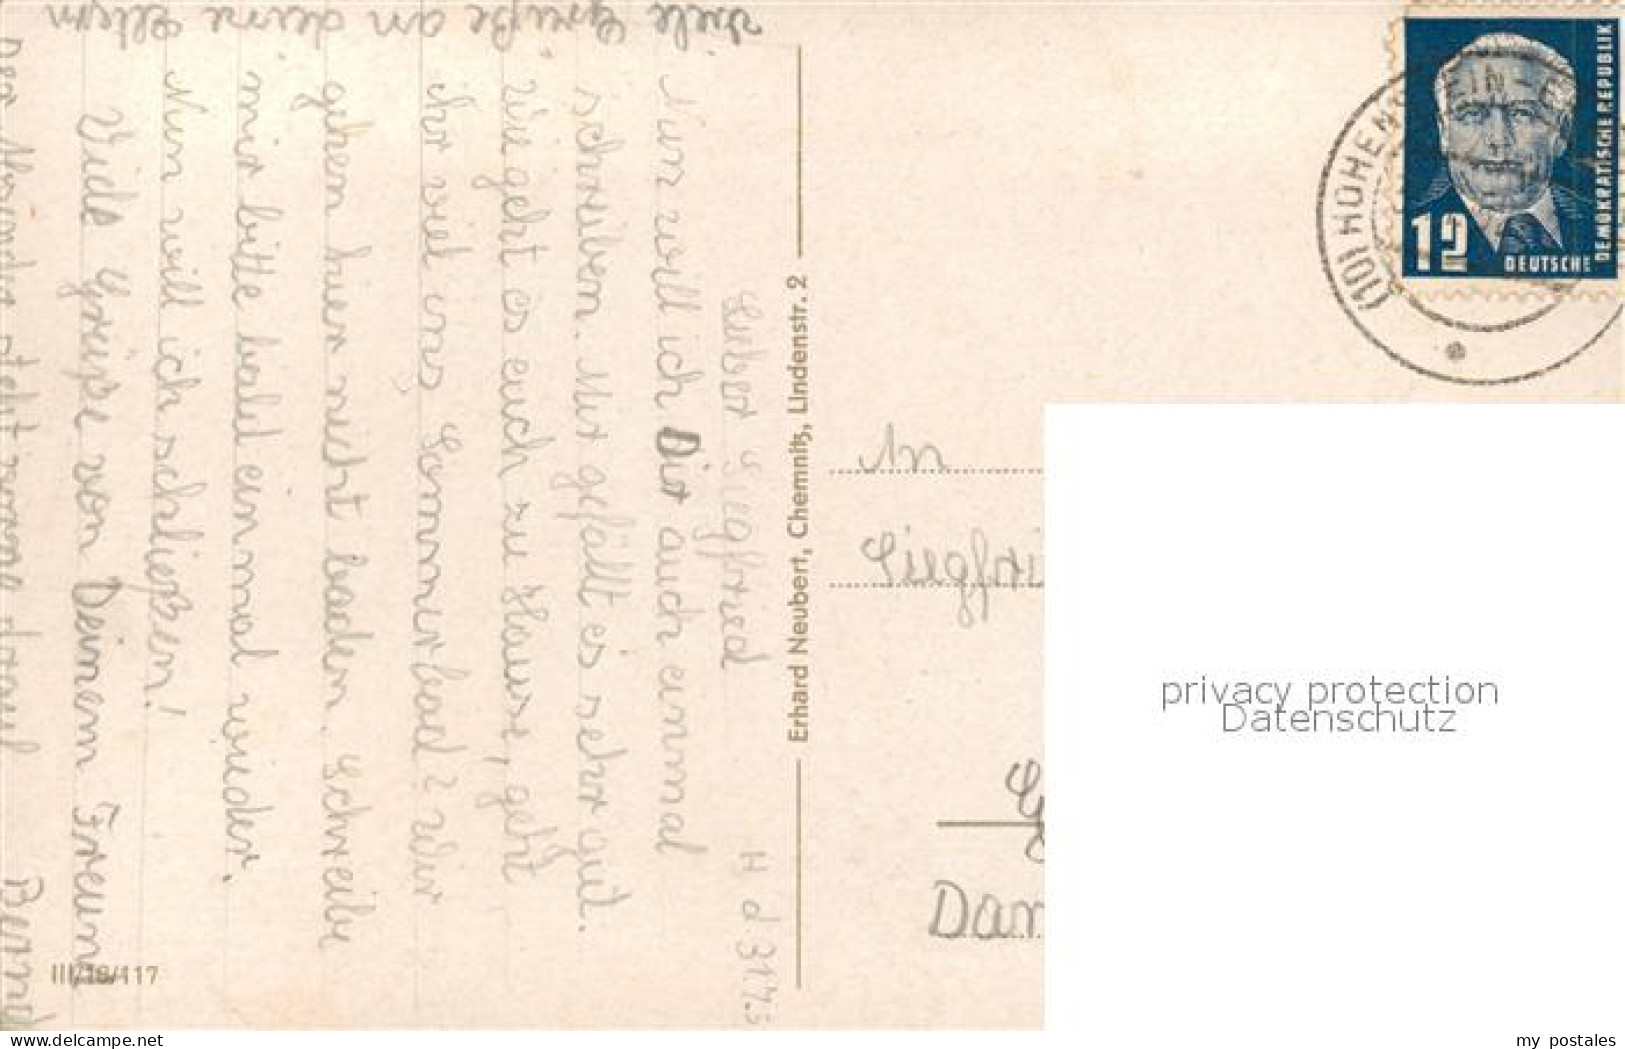 H d 31.7.5
Lieber Siegfried
Nun will ich Dir auch einmal
schreiben. Mir gefällt es sehr gut.
wie geht es euch zu Hause, geht
ihr viel ins Sommerbad? Wir
gehen hier nicht baden. Schreibe
mir bitte bald einmal wieder.
Nun will ich schließen!
Viele Grüße von Deinem Freund
Bernd
viele Grüße an deine Eltern
Erhard Neubert, Chemnitz, Lindenstr. 2
III/18/117
An
Siegfri
Dan
12
DEUTSCHE
DEMOKRATISCHE REPUBLIK
(10) HOHENSTEIN-E
privacy protection
Datenschutz
www.delcampe.net
my_postales